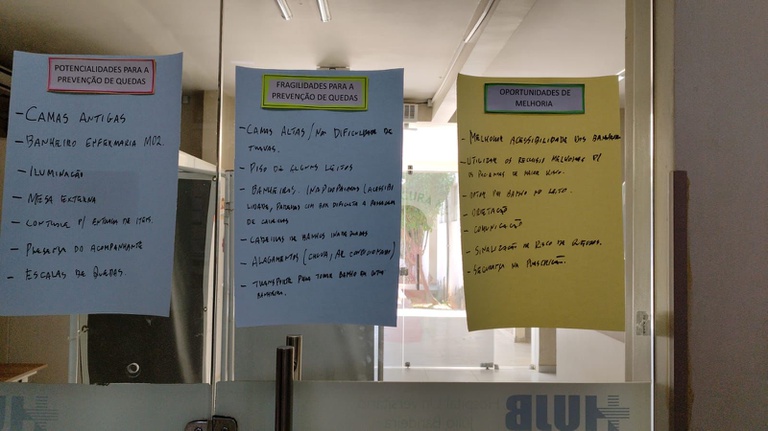 POTENCIALIDADES PARA A
PREVENÇÃO DE QUEDAS
- CAMAS ANTIGAS
- BANHEIRO ENFERMARIA MD2.
- ILUMINAÇÃO
- MESA EXTERNA
- P/ ENTRADA DE ITENS
- PRESENÇA DO ACOMPANHANTE
- ESCALAS DE QUEDAS.
FRAGILIDADES PARA A
PREVENÇÃO DE QUEDAS
- CAMAS ALTAS / NO DIFICULDADE DE
TRAVAS.
- PISO DE ALGUNS LEITOS
- BANHEIROS. (ACESSIBI
LIDADE, DIFICULTA A PASSAGEM
DE CADEIRAS
- CADEIRAS DE BANHOS INADEQUADAS
- ALAGAMENTOS (CHUVA, AR CONDICIONADO)
- TRANSPORTE PARA TOMAR BANHO EM OUTRO
BANHEIRO.
OPORTUNIDADES DE
MELHORIA
- MELHORAR ACESSIBILIDADE DOS BANHEIROS
- UTILIZAR OS RECURSOS MELHORES P/
OS PACIENTES DE MAIOR RISCO.
- OPTAR POR BANHO NO LEITO.
- ORIENTAÇÃO
- COMUNICAÇÃO
- SINALIZAÇÃO DE RISCO DE QUEDAS.
- SEGURANÇA NA PRESCRIÇÃO.
HUJB